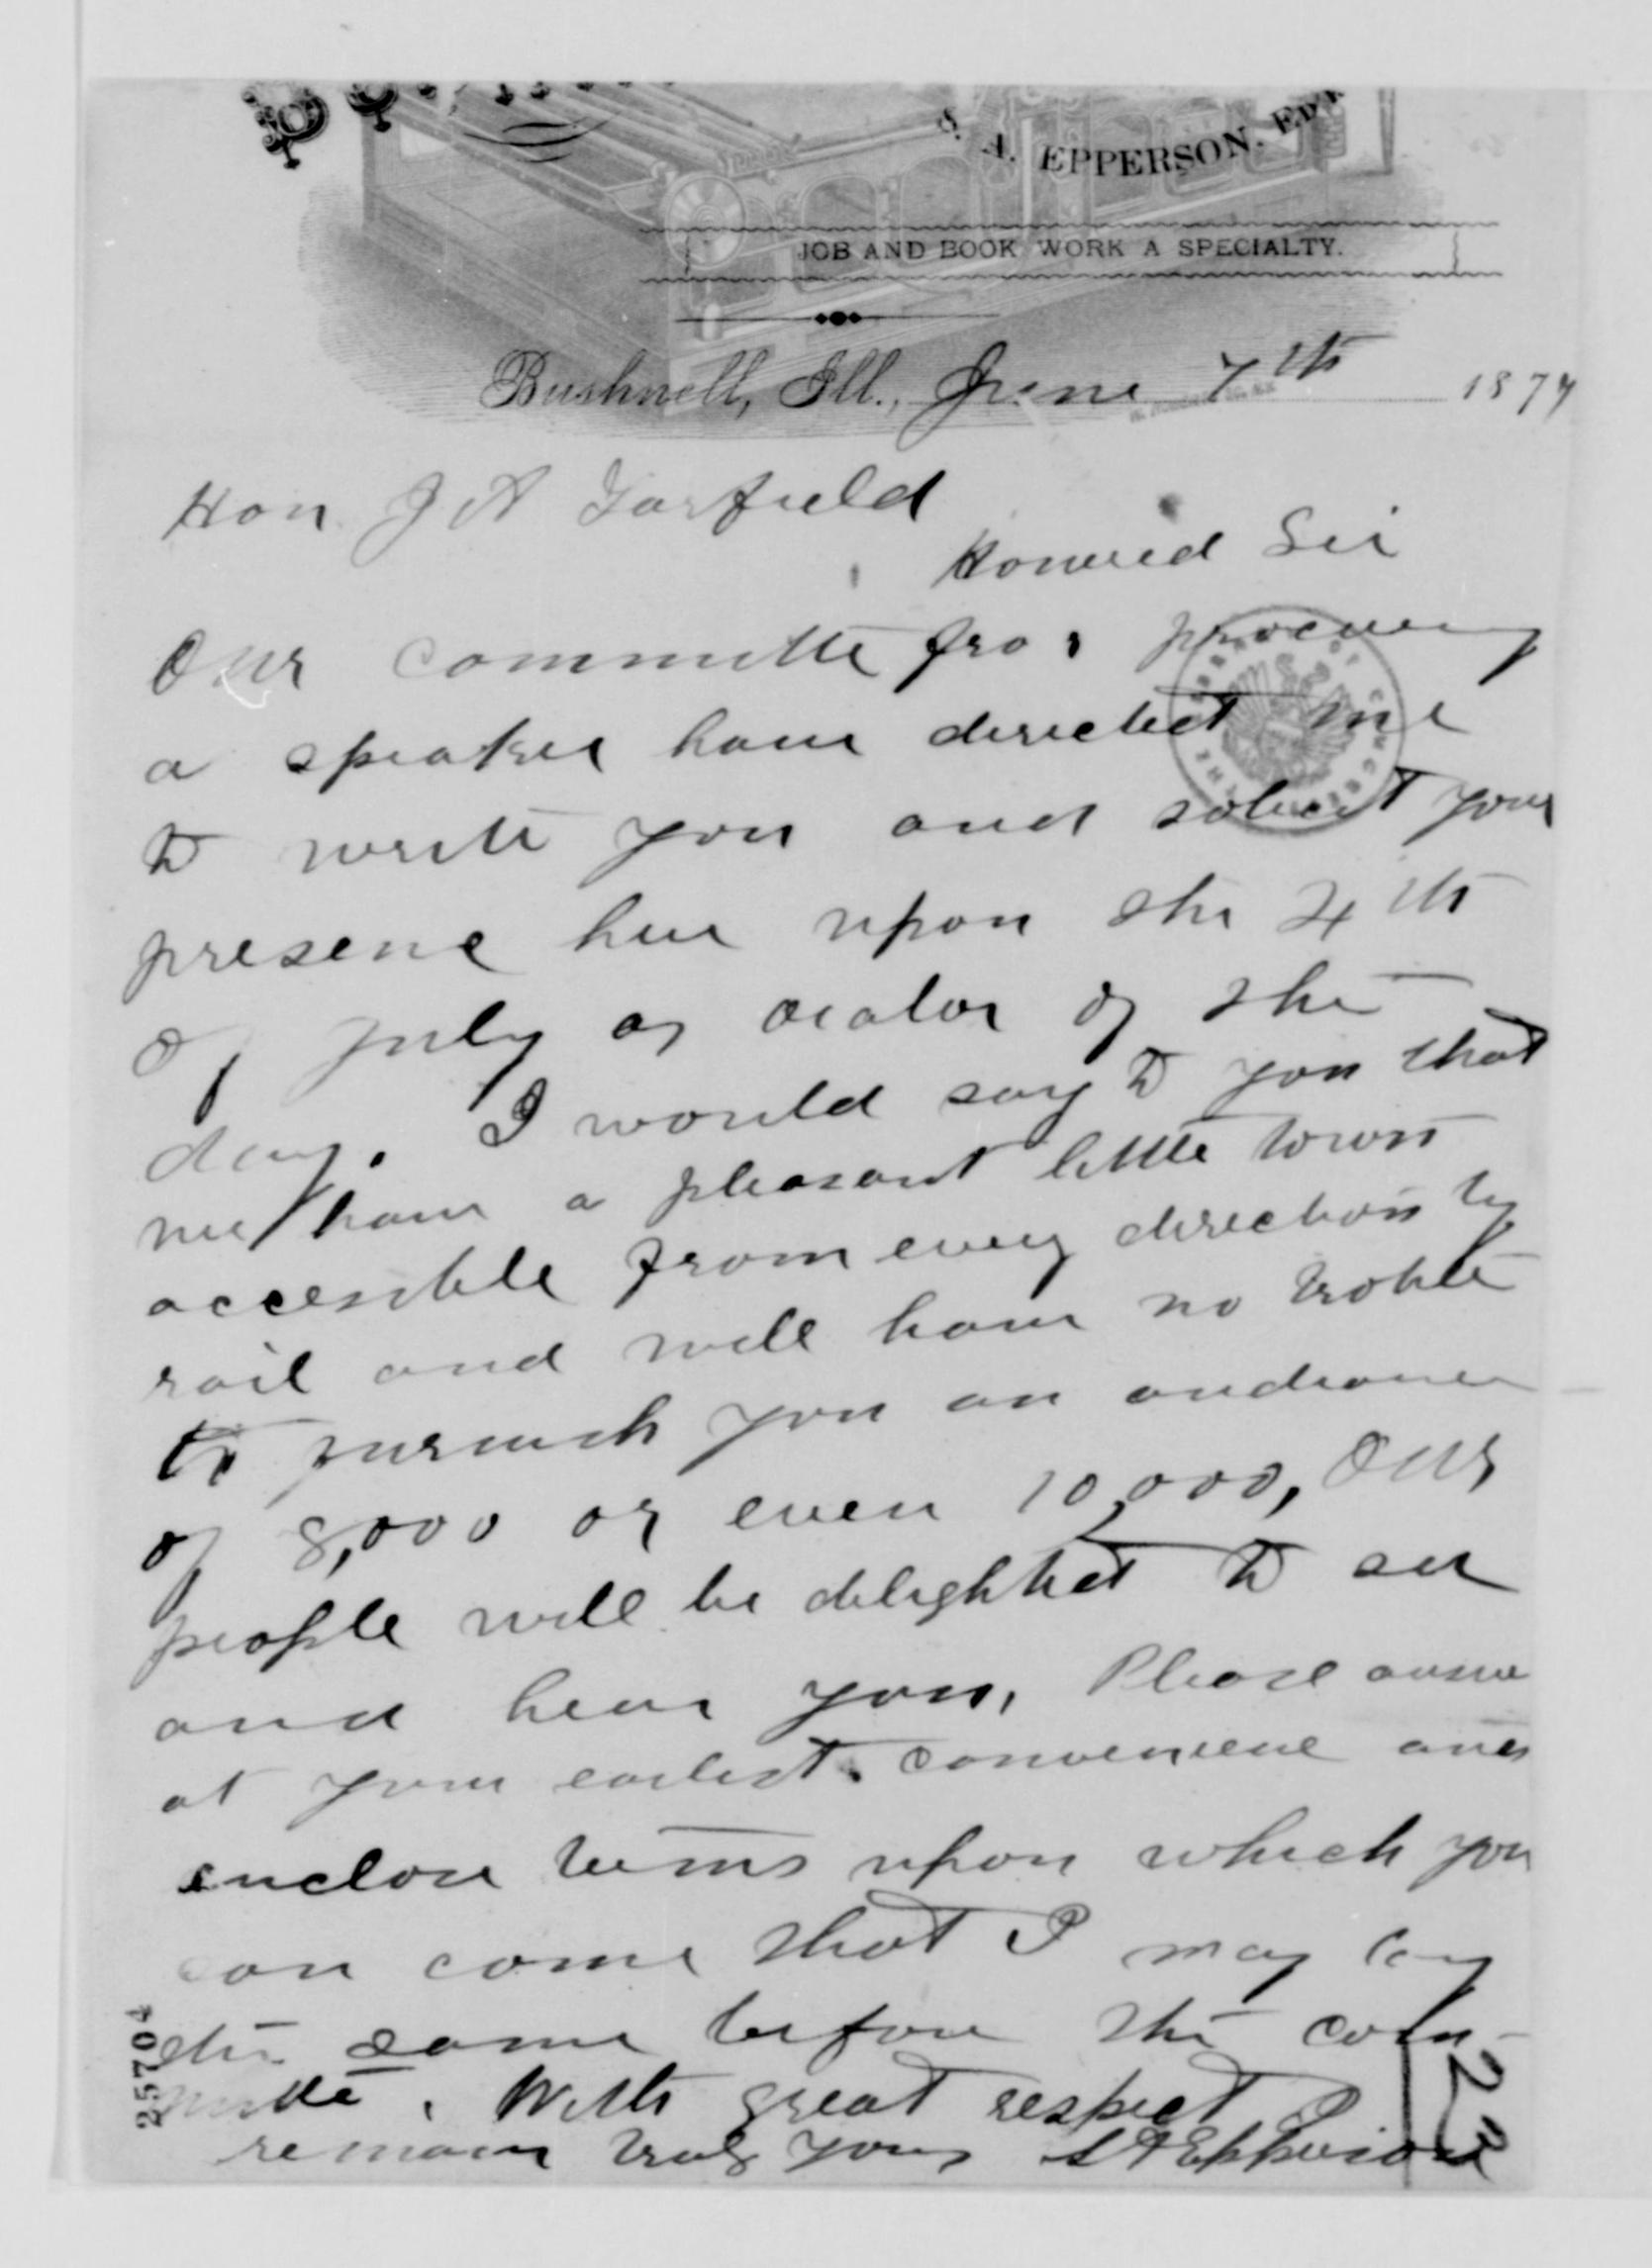 S. A. EPPERSON. ED
JOB AND BOOK WORK A SPECIALTY.
Bushnell, Ill., June 7th 1879
Hon J A Garfield
Honored Sir
Our committe for procuring
a speaker have directed me
to write you and solicit your
presence here upon the 4th
of July as orator of the
day. I would say to you that
we have a pleasant little town
accessible from every direction by
rail and will have no troble
to furnish you an audience
of 8,000 or even 10,000, Our
people will be delighted to see
and hear you, Please answer
at your earliest convenience and
enclose terms upon which you
can come that I may lay
the same before the com-
mitte. With great respect I
remain truly yours S A Epperson
25704
23